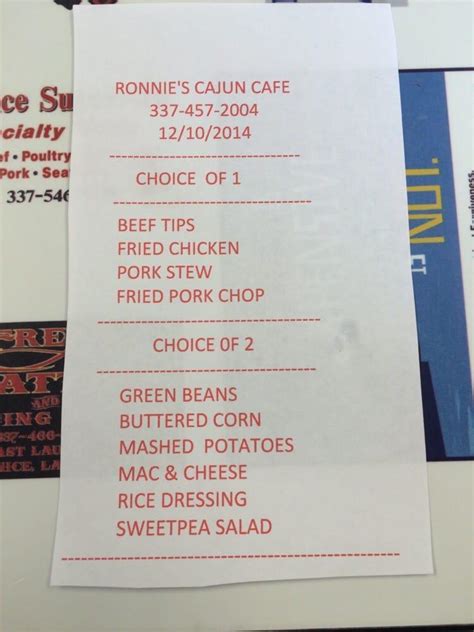 RONNIE'S CAJUN CAFE
337-457-2004
12/10/2014
------------------------------
CHOICE OF 1
------------------------------
BEEF TIPS
FRIED CHICKEN
PORK STEW
FRIED PORK CHOP
------------------------------
CHOICE 0F 2
------------------------------
GREEN BEANS
BUTTERED CORN
MASHED POTATOES
MAC & CHEESE
RICE DRESSING
SWEETPEA SALAD
------------------------------
ce Su
ecialty
ef • Poultry
Pork • Sea
337-546
RE
AT
AND
ING
337-466-
AST LAU
ICE, LA
NOT.
Forgiveness.